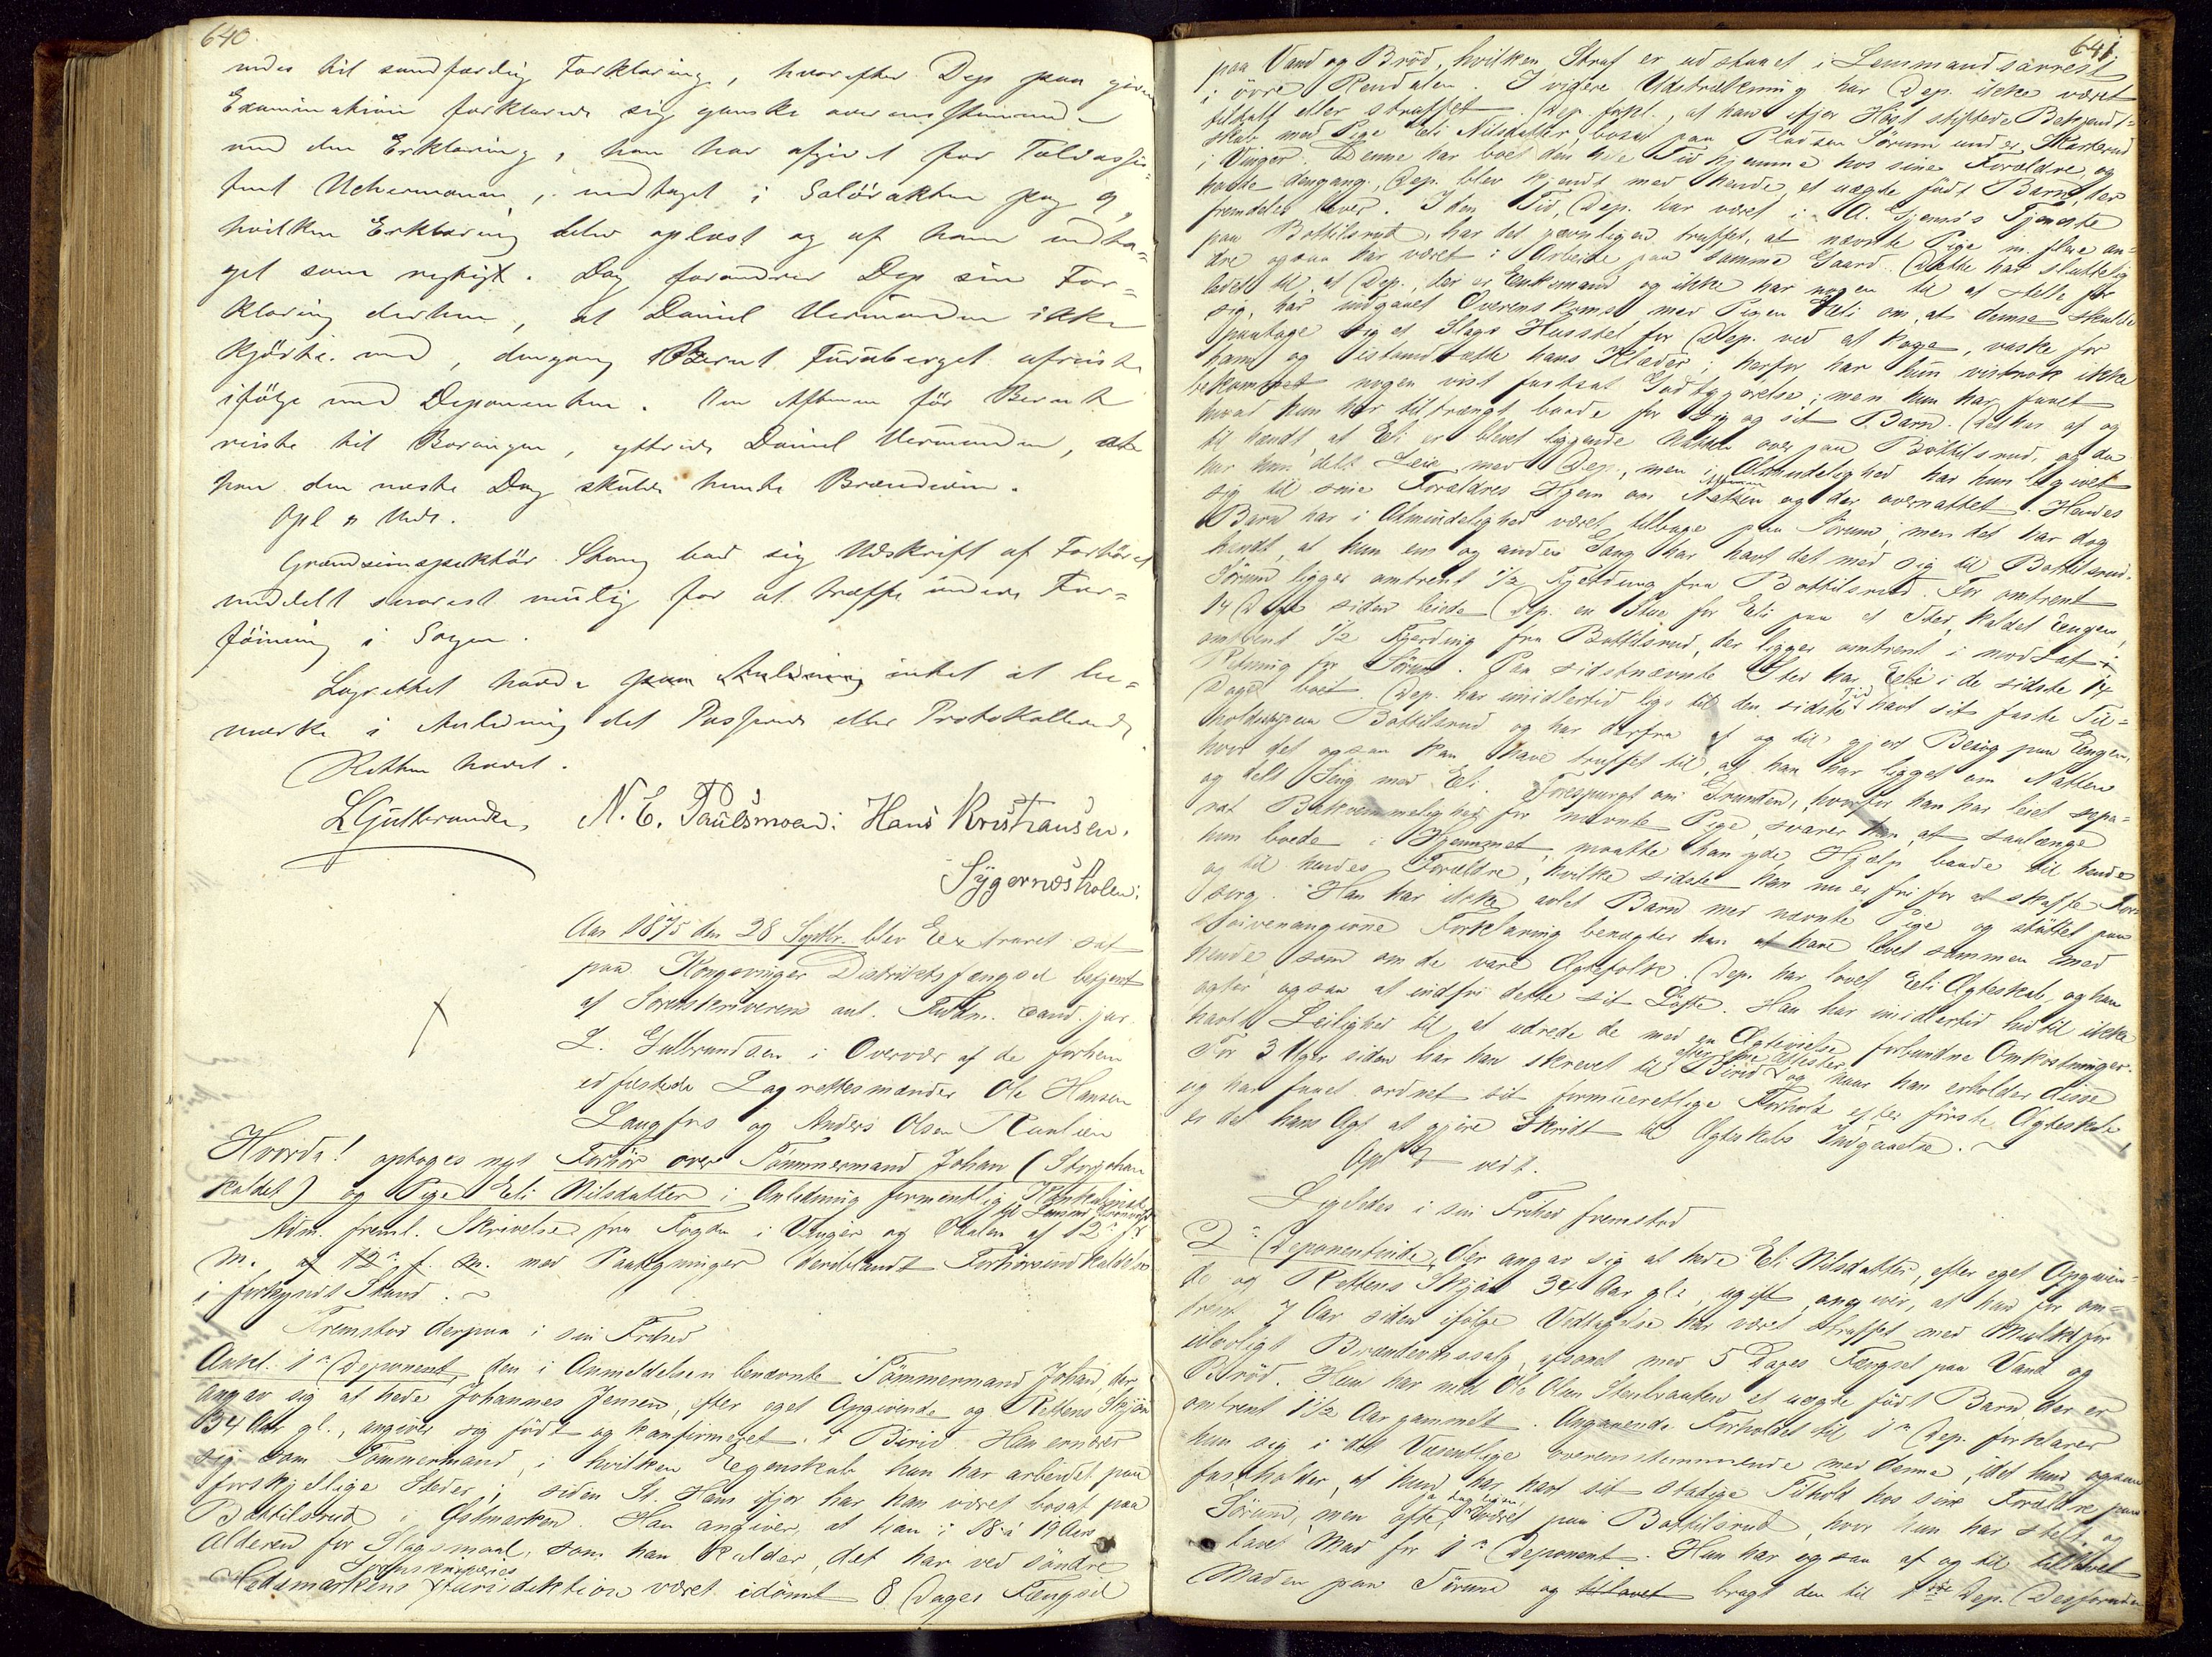 640
nder til sandfærdig Forklaring, hvorefter Dep paa given
Examination forklarede sig ganske overensstemmende
med den Erklæring, han har afgivet for Toldassi-
stent Uchermann, indtaget i Solørakten pag 9,
hvilken Erklæring blev oplæst og af ham vedta-
get som rigtigt. Dog forandrer Dep sin For-
klaring derhen, at Daniel Vermunden ikke
kjørte med, dengang Bernt Furuberget afreiste
ifølge med Deponenten. Om Aftenen før Bernt
reiste til Baringen, yttrede Daniel Vermunden, at
han den næste Dag skulde hente Brændevin.
Opl & Vedt.
Grændseinspektør Stang bad sig Udskrift af Forhøret
meddelt snarest mulig for at træffe videre For-
føining i Sagen.
Lagrettet havde intet at be-
mærke i Anledning det Passerede eller Protokollerede
Retten hævet.
LGulbrandsen, N. E. Paulsmoen: Hans Kristiansen.
Sygernæsholen:
Aar 1875 den 28 Septbr. blev Extraret sat
paa Kongsvinger Distriktsfængsel betjent
af Sorenskriverens aut. Fuldm. cand. jur.
L. Gulbrandsen i Overvær af de forhen
edfæstede Lagrettesmænder Ole Hansen
Langfos og Anders Olsen
Hvorda! optoges nyt Forhør over Tømmermand Johan (Storjohan
kaldet) og Pige Eli Nilsdatter i Anledning formentlig Konkubinat
Adm. freml. Skrivelse fra Fogden i Vinger og Odalen af 12te f.
M. af 12te f. M. med Paategninger deriblandt Forhørsindkaldelse
i forkyndt Stand. ~
Fremstod derpaa i sin Frihed
Ankl. 1ste Deponent, den i Anmeldelsen benævnte Tømmermand Johan, der
angav sig at hede Johannes Jensen, efter eget Opgivende og Rettens Skjøn
34 Aar gl., angiver sig født og konfirmeret i Birid. Han ernærer
sig som Tømmermand, i hvilken Egenskab han har arbeidet paa
forskjellige Steder; siden St. Hans ifjor har han været bosat paa
Bottilsrud i Østmarken. Han angiver, at han i 18 á 19 Aars
Alderen for Slagsmaal, som han kalder det har ved søndre
Sorenskriveries
Hedemarkens Jurisdiktion været idømt 8 Dages Fængsel
641.
paa Vand og Brød, hvilken Straf er udstaaet i Lensmandsarrest
i øvre Rendalen. I videre Udstrækning har Dep. ikke været
tiltalt eller straffet. Dep. forkl., at han ifjor Høst stiftede Bekjendt-
skab med Pige Eli Nilsdatter bosat paa Pladsen Sørum under
i Vinger. Denne har boet den hele Tid hjemme hos sine Forældre, og
havde dengang, Dep. blev kjendt med hende, et uægte født Barn, der
fremdeles lever. I den Tid, Dep. har været i A. Tjeneste
paa Bottilsrud, har det jævnligen truffet, at nævnte Pige m. flere an-
dre ogsaa har været i Arbeide paa samme Gaard. Dette har sluttelig
ledet til, at Dep., der er Enkemand og ikke har nogen til at stelle for
sig, har indgaaet Overenskomst med Pigen Eli om, at denne skulde
paatage sig et Slags Husstel for Dep. ved at koge, vaske for
ham og istandsætte hans Klæder; herfor har hun vistnok ikke
bekommet nogen vist fastsat Godtgjørelse; men hun har faaet
hvad hun har tiltrængt baade for sig og sit Barn. Det har af og
til hændt at Eli er blevet liggende Natten over paa Bottilsrud, og da
har hun delt Leie med Dep., men i Almindelighed har hun begivet
sig til sine Forældres Hjem om Aftenen og der overnattet. Hendes
Barn har i Almindelighed været tilbage paa Sørum; men det har dog
hændt, at hun en og anden Gang har havt det med sig til Bottilsrud.
Sørum ligger omtrent 1/2 Fjerding fra Bottilsrud. For omtrent
14 Dage siden leiede Dep. en Stue for Eli paa et Sted, kaldet Engen,
omtrent 1/2 Fjerding fra Bottilsrud, der ligger omtrent i modsat
Retning for Sørum. Paa sidstnævnte Sted har Eli i de sidste 14
Dage boet. Dep. har imidlertid lige til den sidste Tid havt sit faste Til-
holdssted paa Bottilsrud og har derfra af og til gjort Besøg paa Engen,
hvor det ogsaa kan have truffet til, at han har ligget om Natten
og delt Seng med Eli. Forespurgt om Grunden, hvorfor han har leiet sepa-
rat Bekvemmelighed for nævnte Pige, svarer han, at saalænge
hun boede i Hjemmet, maatte han yde Hjælp baade til hende
og til hendes Forældre, hvilke sidste han nu er fri for at skaffe For-
sørg. Han har ikke avlet Barn med nævnte Pige og støttet paa
foranangivne Forklaring benægter han at have levet sammen med
hende som om de vare Ægtefolk. Dep. har lovet Eli Ægteskab, og han
agter ogsaa at indfri dette sit Løfte. Han har imidlertid hidtil ikke
havt Leilighed til at udrede de med en Ægtevielse forbundne Omkostninger.
For 3 Uger siden har han skrevet til Birid efter sine Attester og naar han erholder disse
og har faaet ordnet sit formueretlige Forhold efter første Ægteskab
er det hans Agt at gjøre Skridt til Ægteskabs Indgaaelse. ~
Opl & vedt.
Ligeledes i sin Frihed fremstod
2den Deponentinde, der angav sig at hede Eli Nilsdatter, efter eget Opgiven-
de og Rettens Skjøn 34 Aar gl., ugift angiver, at hun for om-
trent 7 Aar siden ifølge Vedtagelse har været straffet med Mulkt for
ulovligt Brændevinssalg, afsonet med 5 Dages Fængsel paa Vand og
Brød. Hun har med Ole Olsen Stenbraaten et uægte født Barn der er
omtrent 1 1/2 Aar gammelt. Angaaende Forholdet til 1ste Dep. forklarer
hun sig i det Væsentlige overensstemmende med denne, idet hun ogsaa
fastholder, at hun har havt sit stadige Tilhold hos sine Forældre paa
Sørum, men ofte, ja dagligen, været paa Bottilsrud, hvor hun har stelt og
lavet Mad for 1ste Deponent. Hun har ogsaa af og til tillavet
Maden paa Sørum og tillavet bragt den til 1ste Dep. Desforuden